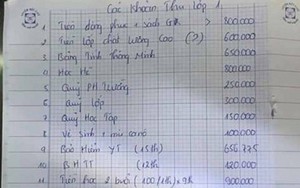 Các Khoản Thu lớp 1.
1 Tiền đồng phục + sách GK > 800.000
2 Tiền lớp chất lượng Cao (?) 600.000
3 Bảng Tính Thông Minh 650.000
4 Học Hè 800.000
5 Quỹ PH Trường 250.000
6 Quỹ lớp 300.000
7 Quỹ Học Tập 150.000
8 Vệ sinh + 100.000
9 Bảo Hiểm YT (15th) 656.775
10 B.H.TT (12th) 120.000
11 Tiền học 2 buổi (100/1th) x 9th 900.000